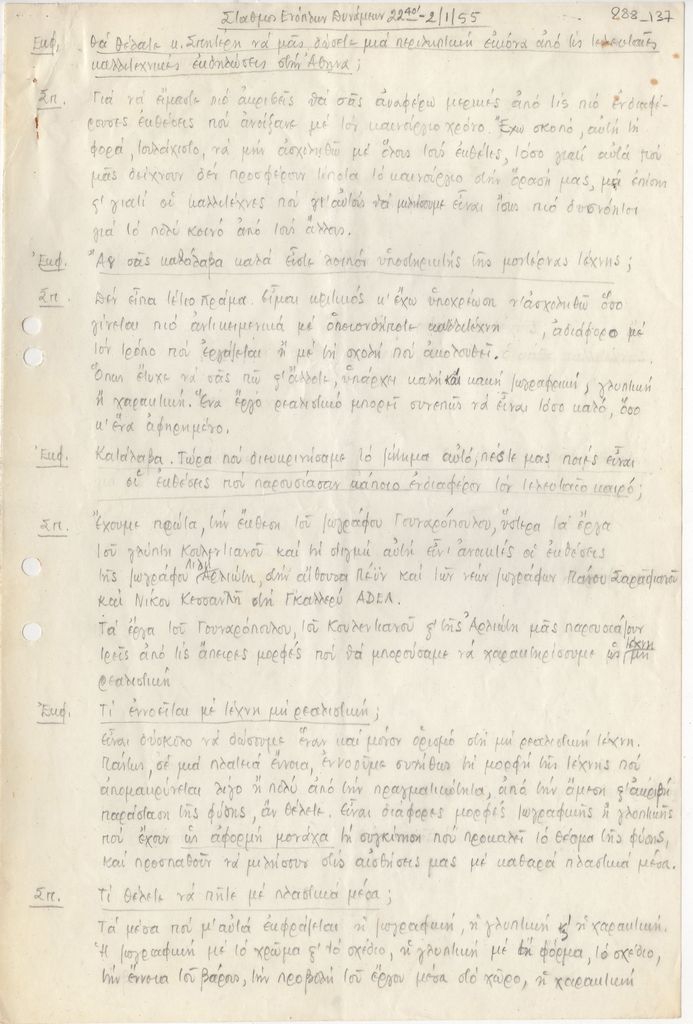 Σταθμός Ενόπλων Δυνάμεων 22⁴⁰΄-2/1/55
288_137
Εκφ. Θά θέλατε κ. Σπητέρη νά μᾶς δώσετε μιά περιληπτική εἰκόνα ἀπό τίς τελευταῖες
καλλιτεχνικές ἐκδηλώσεις στήν Ἀθήνα;
Σπ. Γιά νά εἴμαστε πιό ἀκριβεῖς θά σᾶς ἀναφέρω μερικές ἀπό τίς πιό ἐνδιαφέ-
ρουσες ἐκθέσεις πού ἀνοίξανε μέ τόν καινούργιο χρόνο. Ἔχω σκοπό, αὐτή τή
φορά, τουλάχιστο, νά μήν ἀσχοληθῶ μέ ὅλους τούς ἐκθέτες, τόσο γιατί αὐτά πού
μᾶς δείχνουν δέν προσφέρουν τίποτα τό καινούργιο στήν ὅρασή μας, μά ἐπίσης
ϛ' γιατί οἱ καλλιτέχνες πού γι' αὐτούς νά μιλήσουμε εἶναι ἴσως πιό δυσνόητοι
γιά τό πολύ κοινό ἀπό τούς ἄλλους.
Ἐκφ. Ἄν σᾶς κατάλαβα καλά εἶστε λοιπόν ὑποστηρικτής τῆς μοντέρνας τέχνης;
Σπ. Δέν εἶπα τέτιο πράμα. Εἶμαι κριτικός κ' ἔχω ὑποχρέωση ν' ἀσχοληθῶ ὅσο
γίνεται πιό ἀντικειμενικά μέ ὁποιονδήποτε καλλιτέχνη , ἀδιάφορο μέ
τόν τρόπο πού ἐργάζεται ἤ μέ τή σχολή πού ἀκολουθεῖ.
Ὅπως ἔτυχε νά σᾶς πῶ ϛ' ἄλλοτε, ὑπάρχει καλή καί κακή ζωγραφική, γλυπτική
ἤ χαρακτική. Ἕνα ἔργο ρεαλιστικό μπορεῖ συνεπῶς νά εἶναι τόσο καλό, ὅσο
κ' ἕνα ἀφηρημένο.
Ἐκφ. Κατάλαβα. Τώρα πού διευκρινήσαμε τό ζήτημα αὐτό, πέστε μας ποιές εἶναι
οἱ ἐκθέσεις πού παρουσίασαν κάποιο ἐνδιαφέρον τόν τελευταῖο καιρό;
Σπ. Ἔχουμε πρῶτα, τήν ἔκθεση τοῦ ζωγράφου Γουναρόπουλου, ὕστερα τά ἔργα
τοῦ γλύπτη Κουλεντιανοῦ καί τή στιγμή αὐτή εἶναι ἀνοιχτές οἱ ἐκθέσεις
τῆς ζωγράφου Ἀρλιώτη, στήν αἴθουσα Πέϋν καί τῶν νέων ζωγράφων Πάνου Σαραφιανοῦ
καί Νίκου Κεσσανλῆ στή Γκαλλερύ ΑΔΕΛ.
Τά ἔργα τοῦ Γουναρόπουλου, τοῦ Κουλεντιανοῦ ϛ' τῆς Ἀρλιώτη μᾶς παρουσιάζουν
τρεῖς ἀπό τίς ἄπειρες μορφές πού θά μπορούσαμε νά χαρακτηρίσουμε ὡς τέχνη μή
ρεαλιστική
Ἐκφ. Τί ἐννοεῖται μέ τέχνη μή ρεαλιστική;
Εἶναι δύσκολο νά δώσουμε ἕναν καί μόνον ὁρισμό στή μή ρεαλιστική τέχνη.
Πάντως, σέ μιά πλατειά ἔννοια, ἐννοοῦμε συνήθως τή μορφή τῆς τέχνης πού
ἀπομακρύνεται λίγο ἤ πολύ ἀπό τήν πραγματικότητα, ἀπό τήν ἄμεση ϛ' ἀκριβή
παράσταση τῆς φύσης, ἄν θέλετε. Εἶναι διάφορες μορφές ζωγραφικῆς ἤ γλυπτικῆς
πού ἔχουν ὡς ἀφορμή μονάχα τή συγκίνηση πού προκαλεῖ τό θέαμα τῆς φύσης,
καί προσπαθοῦν νά μιλήσουν στίς αἰσθήσεις μας μέ καθαρά πλαστικά μέσα.
Σπ. Τί θέλετε νά πῆτε μέ πλαστικά μέσα;
Τά μέσα πού μ' αὐτά ἐκφράζεται ἡ ζωγραφική, ἡ γλυπτική ϛ' ἡ χαρακτική.
Ἡ ζωγραφική μέ τό χρῶμα ϛ' τό σχέδιο, ἡ γλυπτική μέ τή φόρμα, τό σχέδιο,
τήν ἔννοια τοῦ βάρους, τήν προβολή τοῦ ἔργου μέσα στό χῶρο, ἡ χαρακτική